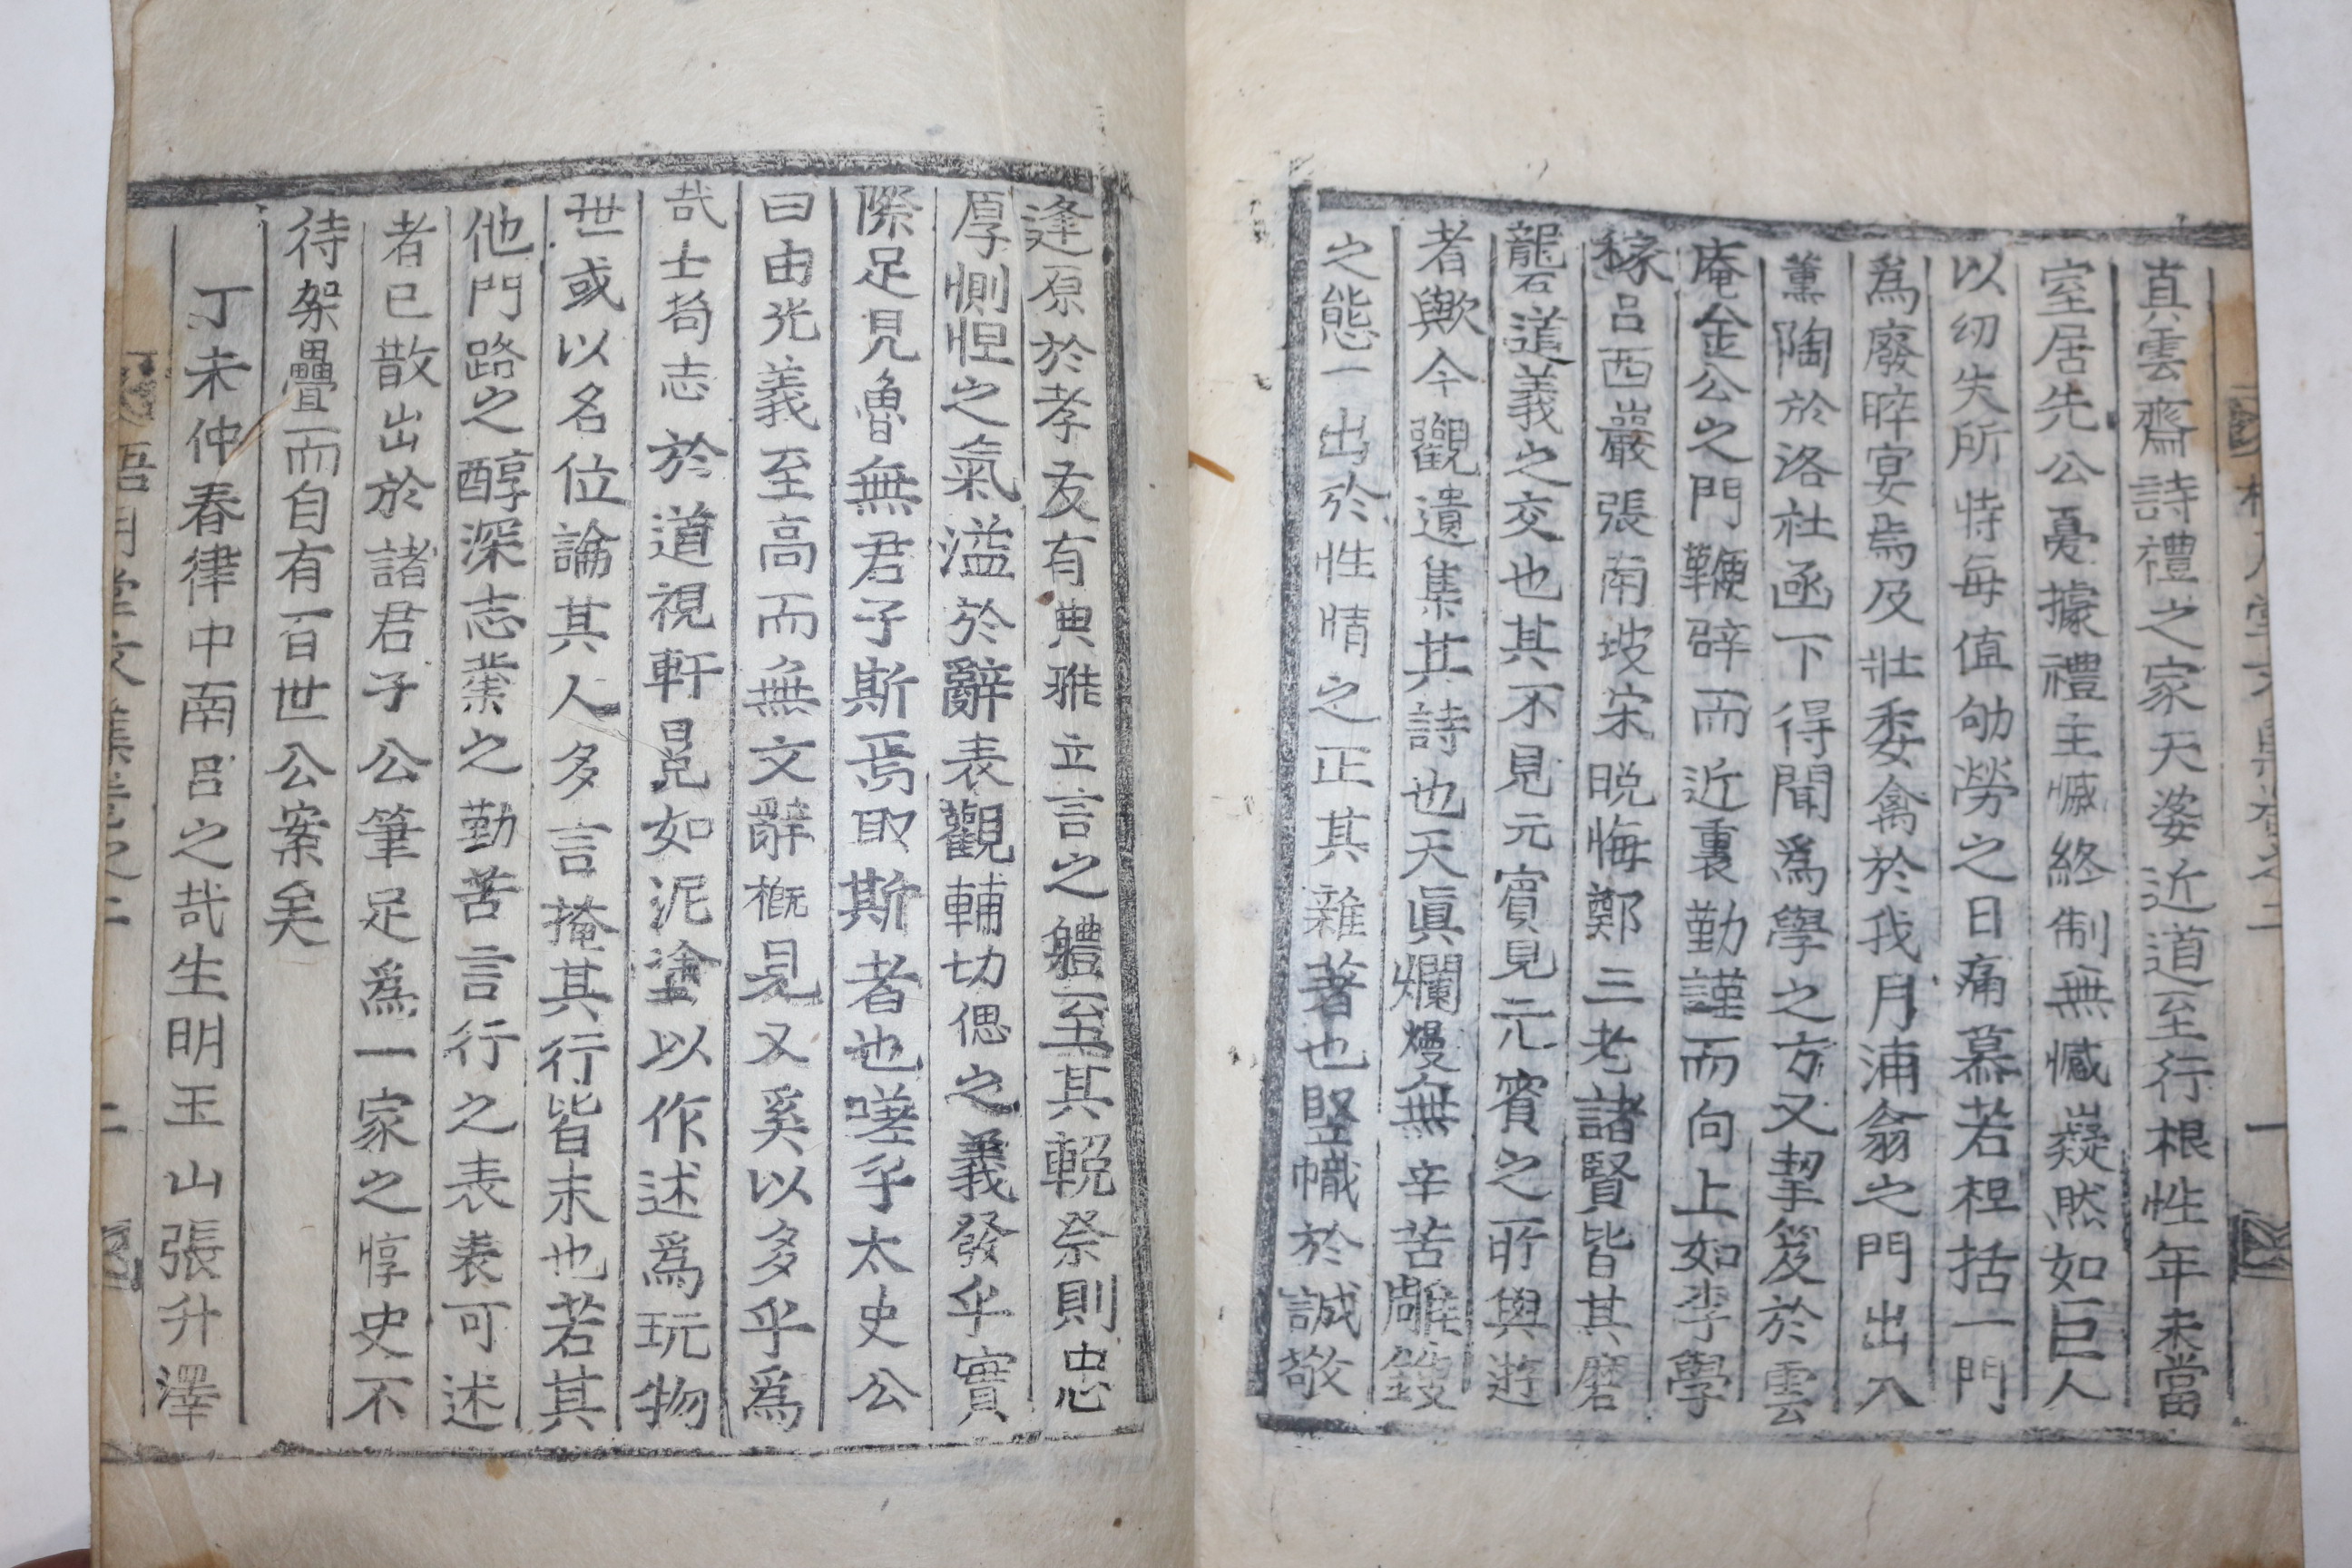 真雲齋詩禮之家天姿近道至行根性年未當
室居先公憂據禮主慽終制無憾嶷然如巨人
以幼失所恃每値劬勞之日痛慕若袒括一門
爲廢晬宴焉及壯委禽於我月浦翁之門出入
薰陶於洛社函下得聞爲學之方又挈笈於雲
庵金公之門鞭辟而近裏勤謹而向上如李學
稼呂西巖張南坡宋晩悔鄭三老諸賢皆其磨
礱道義之交也其不見元賓見元賓之所與遊
者歟今觀遺集其詩也天眞爛熳無辛苦雕鎪
之態一出於性情之正其雜著也竪幟於誠敬
逢原於孝友有典雅立言之體至其輓祭則忠
厚惻怛之氣溢於辭表觀輔切偲之義發乎實
際足見魯無君子斯焉取斯者也嗟乎太史公
曰由光義至高而無文辭槪見又奚以多乎爲
哉士苟志於道視軒冕如泥塗以作述爲玩物
世或以名位論其人多言掩其行皆末也若其
他門路之醇深志業之勤苦言行之表表可述
者已散出於諸君子公筆足爲一家之惇史不
待架疊而自有百世公案矣
丁未仲春律中南呂之哉生明玉山張升澤
梧月堂文集卷之二 二